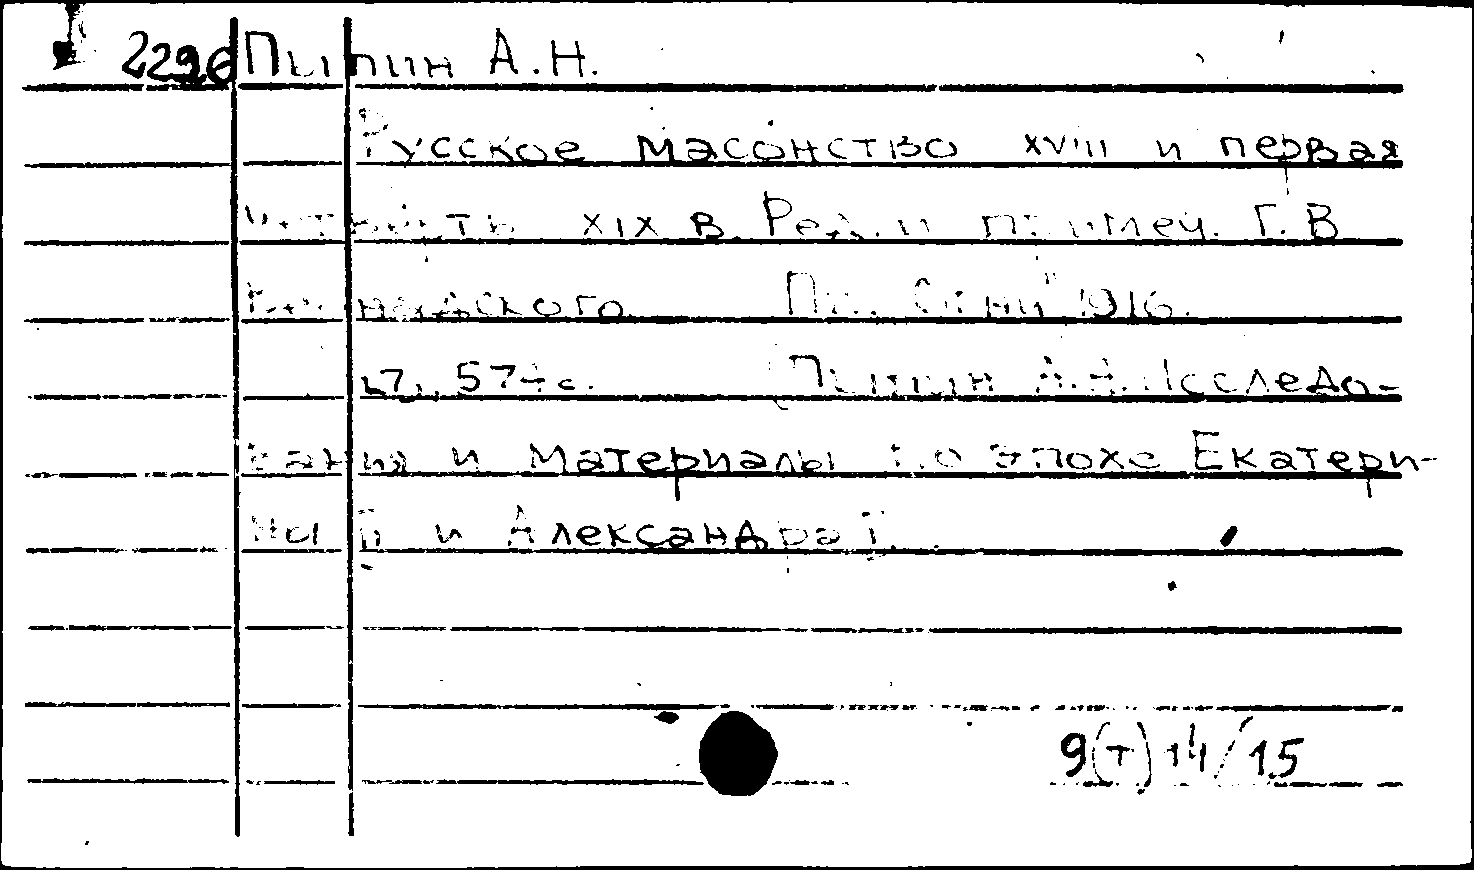 2296 Пыпин А.Н.
Русское масонство XVIII и первая
четверть XIX в. Ред. и примеч. Г.В
Вернадского Пг., "Огни" 1916.
574 с. (Пыпин А.Н. Исследо-
вания и материалы по эпохе Екатери-
ны II и Александра I.
9(т)14/15